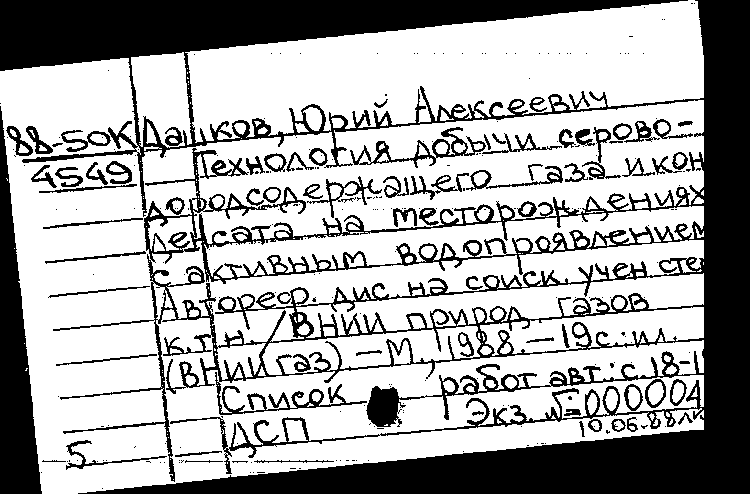 88-50К Дашков, Юрий Алексеевич
4549 Технология добычи серово-
дородсодержащего газа и кон
денсата на месторождениях
с активным водопроявлением
Автореф. дис. на соиск. учен сте
к.т.н. / ВНИИ природ. газов
(ВНИИгаз). – М., 1988. – 19с.: ил.
Список работ авт.: с. 18-1
Экз. №: 000004
ДСП
10.06.88
5.